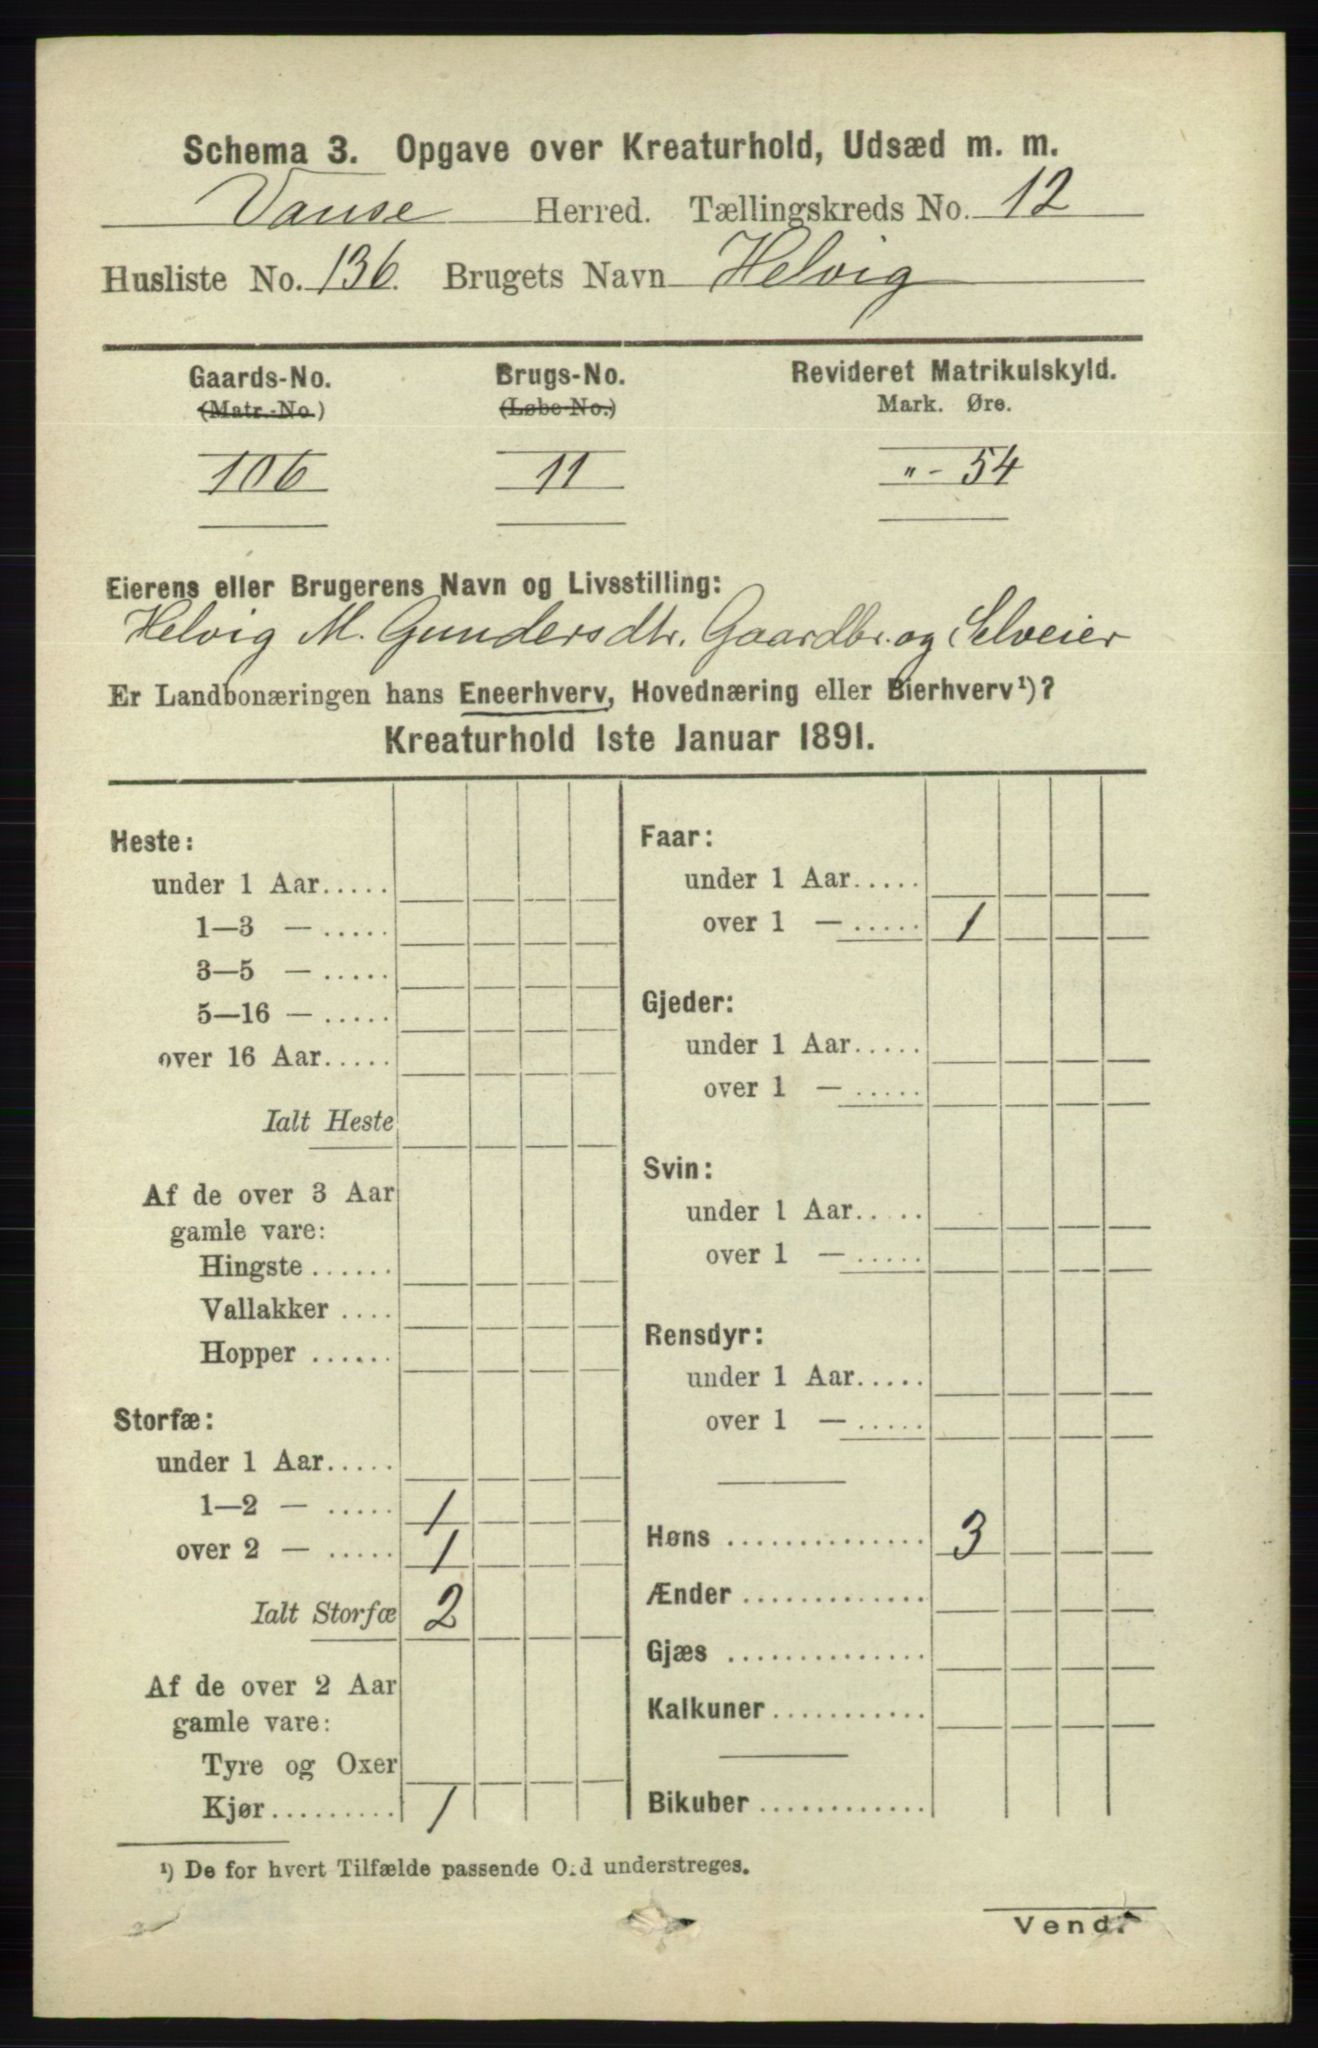 Schema 3. Opgave over Kreaturhold, Udsæd m. m.
Vanse Herred. Tællingskreds No. 12
Husliste No. 136. Brugets Navn Helvig
Gaards-No. Brugs-No. Revideret Matrikulskyld.
(Matr.-No.) (Løbe-No.) Mark. Øre.
106 11 " - 54
Eierens eller Brugerens Navn og Livsstilling:
Helvig M. Gundersdtr. Gaardbr. og Selveier
Er Landbonæringen hans Eneerhverv, Hovednæring eller Bierhverv¹)?
Kreaturhold 1ste Januar 1891.
Heste:
under 1 Aar.....
1—3 — .....
3—5 — .....
5—16 — .....
over 16 Aar.....
Ialt Heste
Af de over 3 Aar
gamle vare:
Hingste ......
Vallakker ....
Hopper ......
Storfæ:
under 1 Aar.....
1—2 — ..... 1
over 2 — ..... 1
Ialt Storfæ 2
Af de over 2 Aar
gamle vare:
Tyre og Oxer
Kjør......... 1
Faar:
under 1 Aar.....
over 1 — ..... 1
Gjeder:
under 1 Aar.....
over 1 — .....
Svin:
under 1 Aar.....
over 1 — .....
Rensdyr:
under 1 Aar.....
over 1 — .....
Høns .............. 3
Ænder .............
Gjæs ..............
Kalkuner ...........
Bikuber ............
¹) De for hvert Tilfælde passende Ord understreges.
Vend.